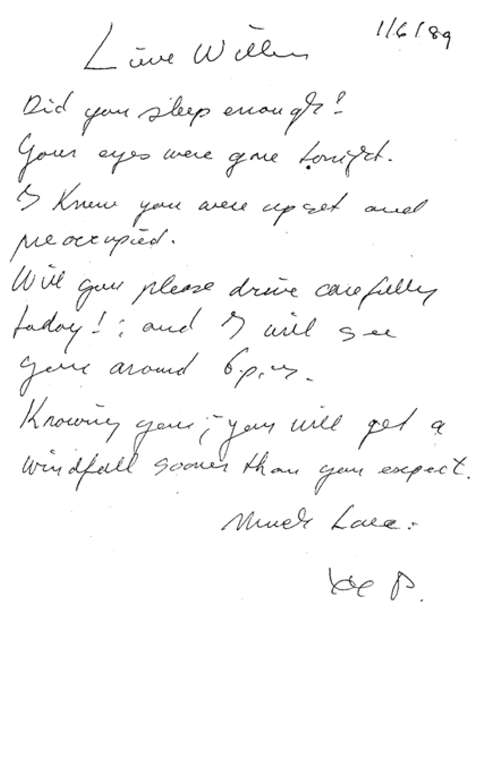 1/6/89
Did you sleep enough?
Your eyes were gone tonight.
I knew you were upset and
preoccupied.
Will you please drive carefully
today! ; and I will see
you around 6 p.m.
Knowing you, you will get a
windfall sooner than you expect.
Much Love.